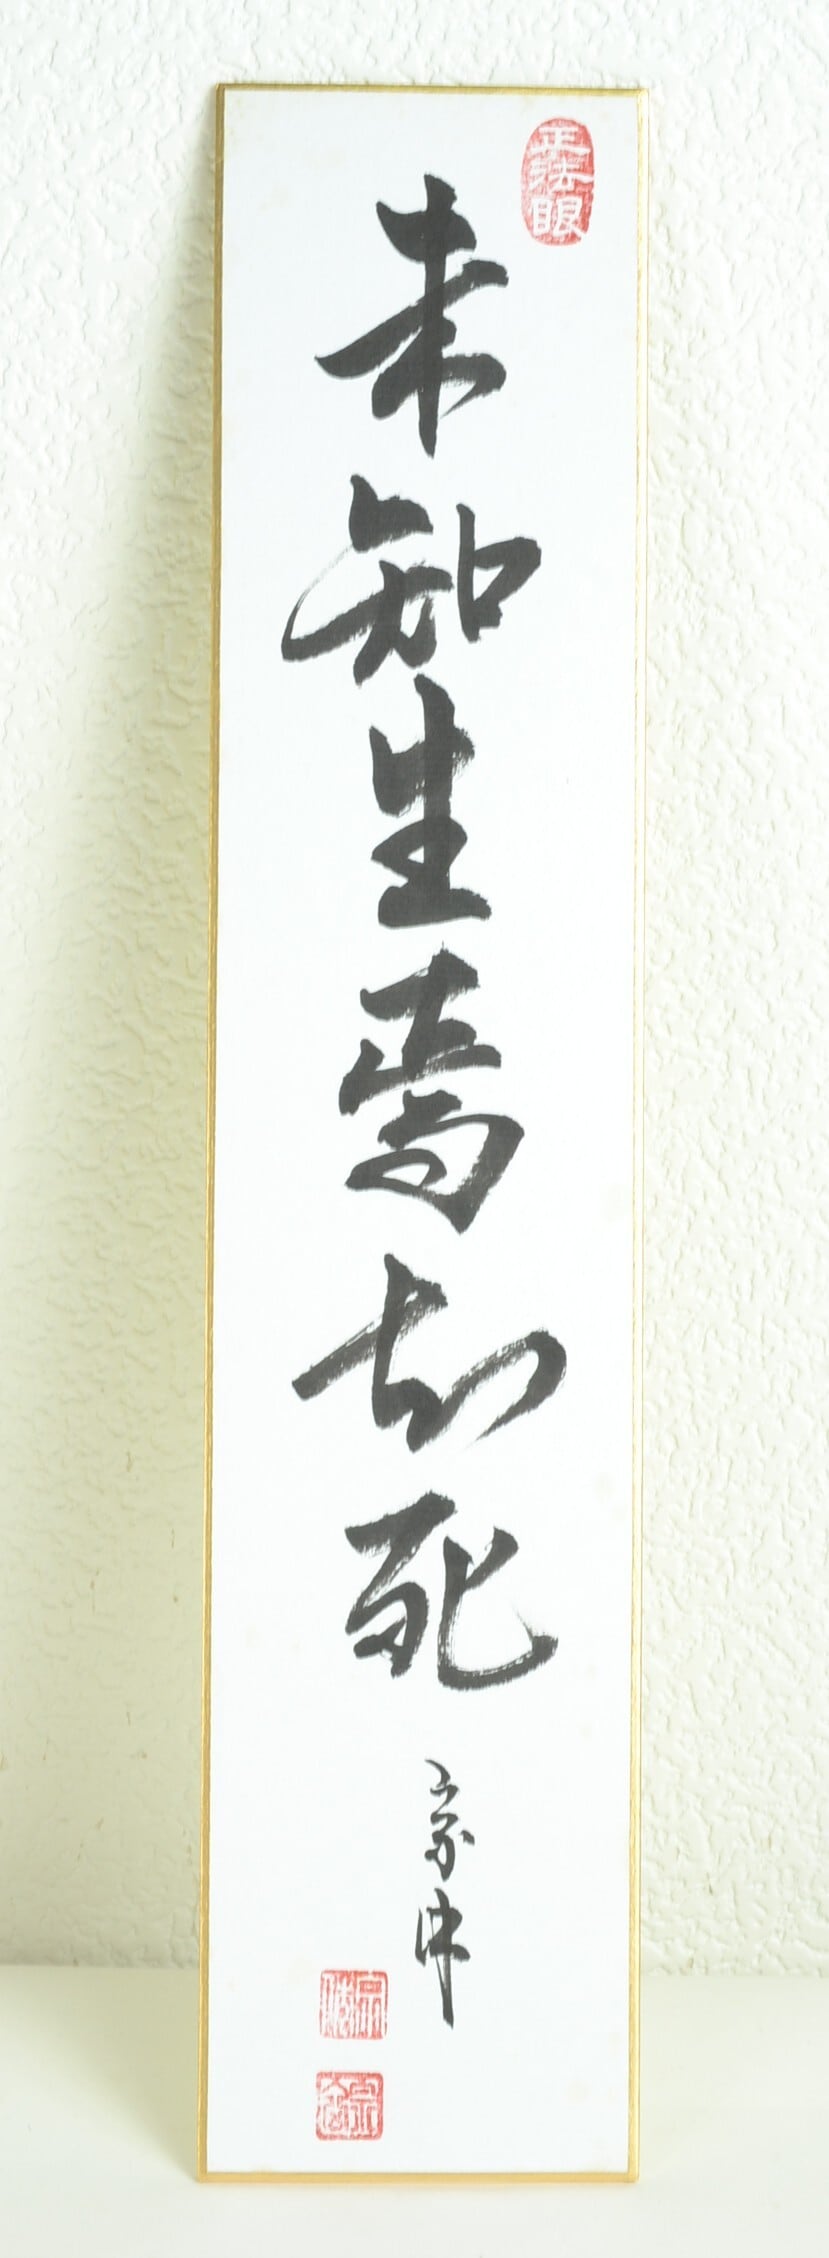 正法眼
未知生焉知死